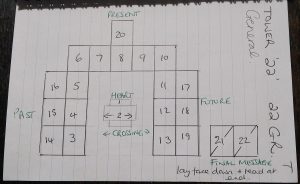 PRESENT
20
6 7 8 9 10
16 5 11 17
HEART
PAST 15 4 2 12 18 FUTURE
CROSSING
14 3 13 19
21 22
FINAL MESSAGE
lay face down & read at
end.
TOWER 22' 22 GR T
General